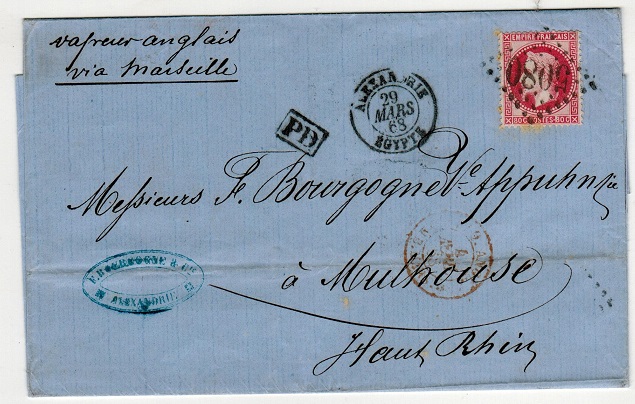 vapeur anglais
via Marseille
EMPIRE FRANÇAIS
80C POSTES 80C
ALEXANDRIE
29
MARS
68
EGYPTE
PD
Messieurs F. Bourgogne Vve Appuhn
à Mulhouse
Haut Rhin
F. BOURGOGNE & Cie
ALEXANDRIE